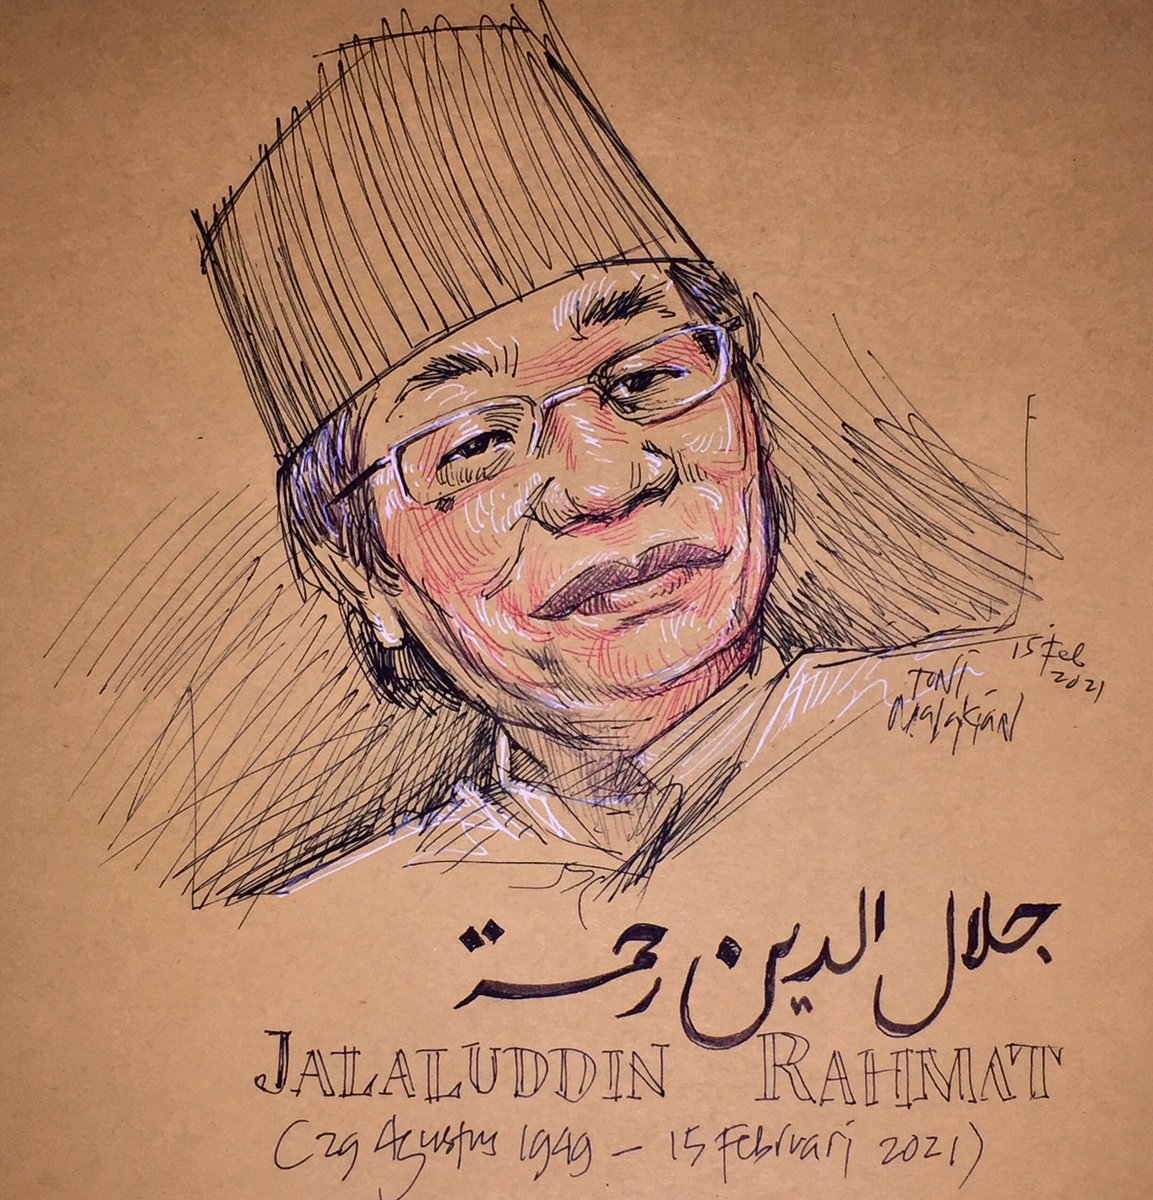 15 Feb
2021
TONI
MALAKIAN
جلال الدين رحمة
JALALUDDIN RAHMAT
(29 Agustus 1949 – 15 Februari 2021)